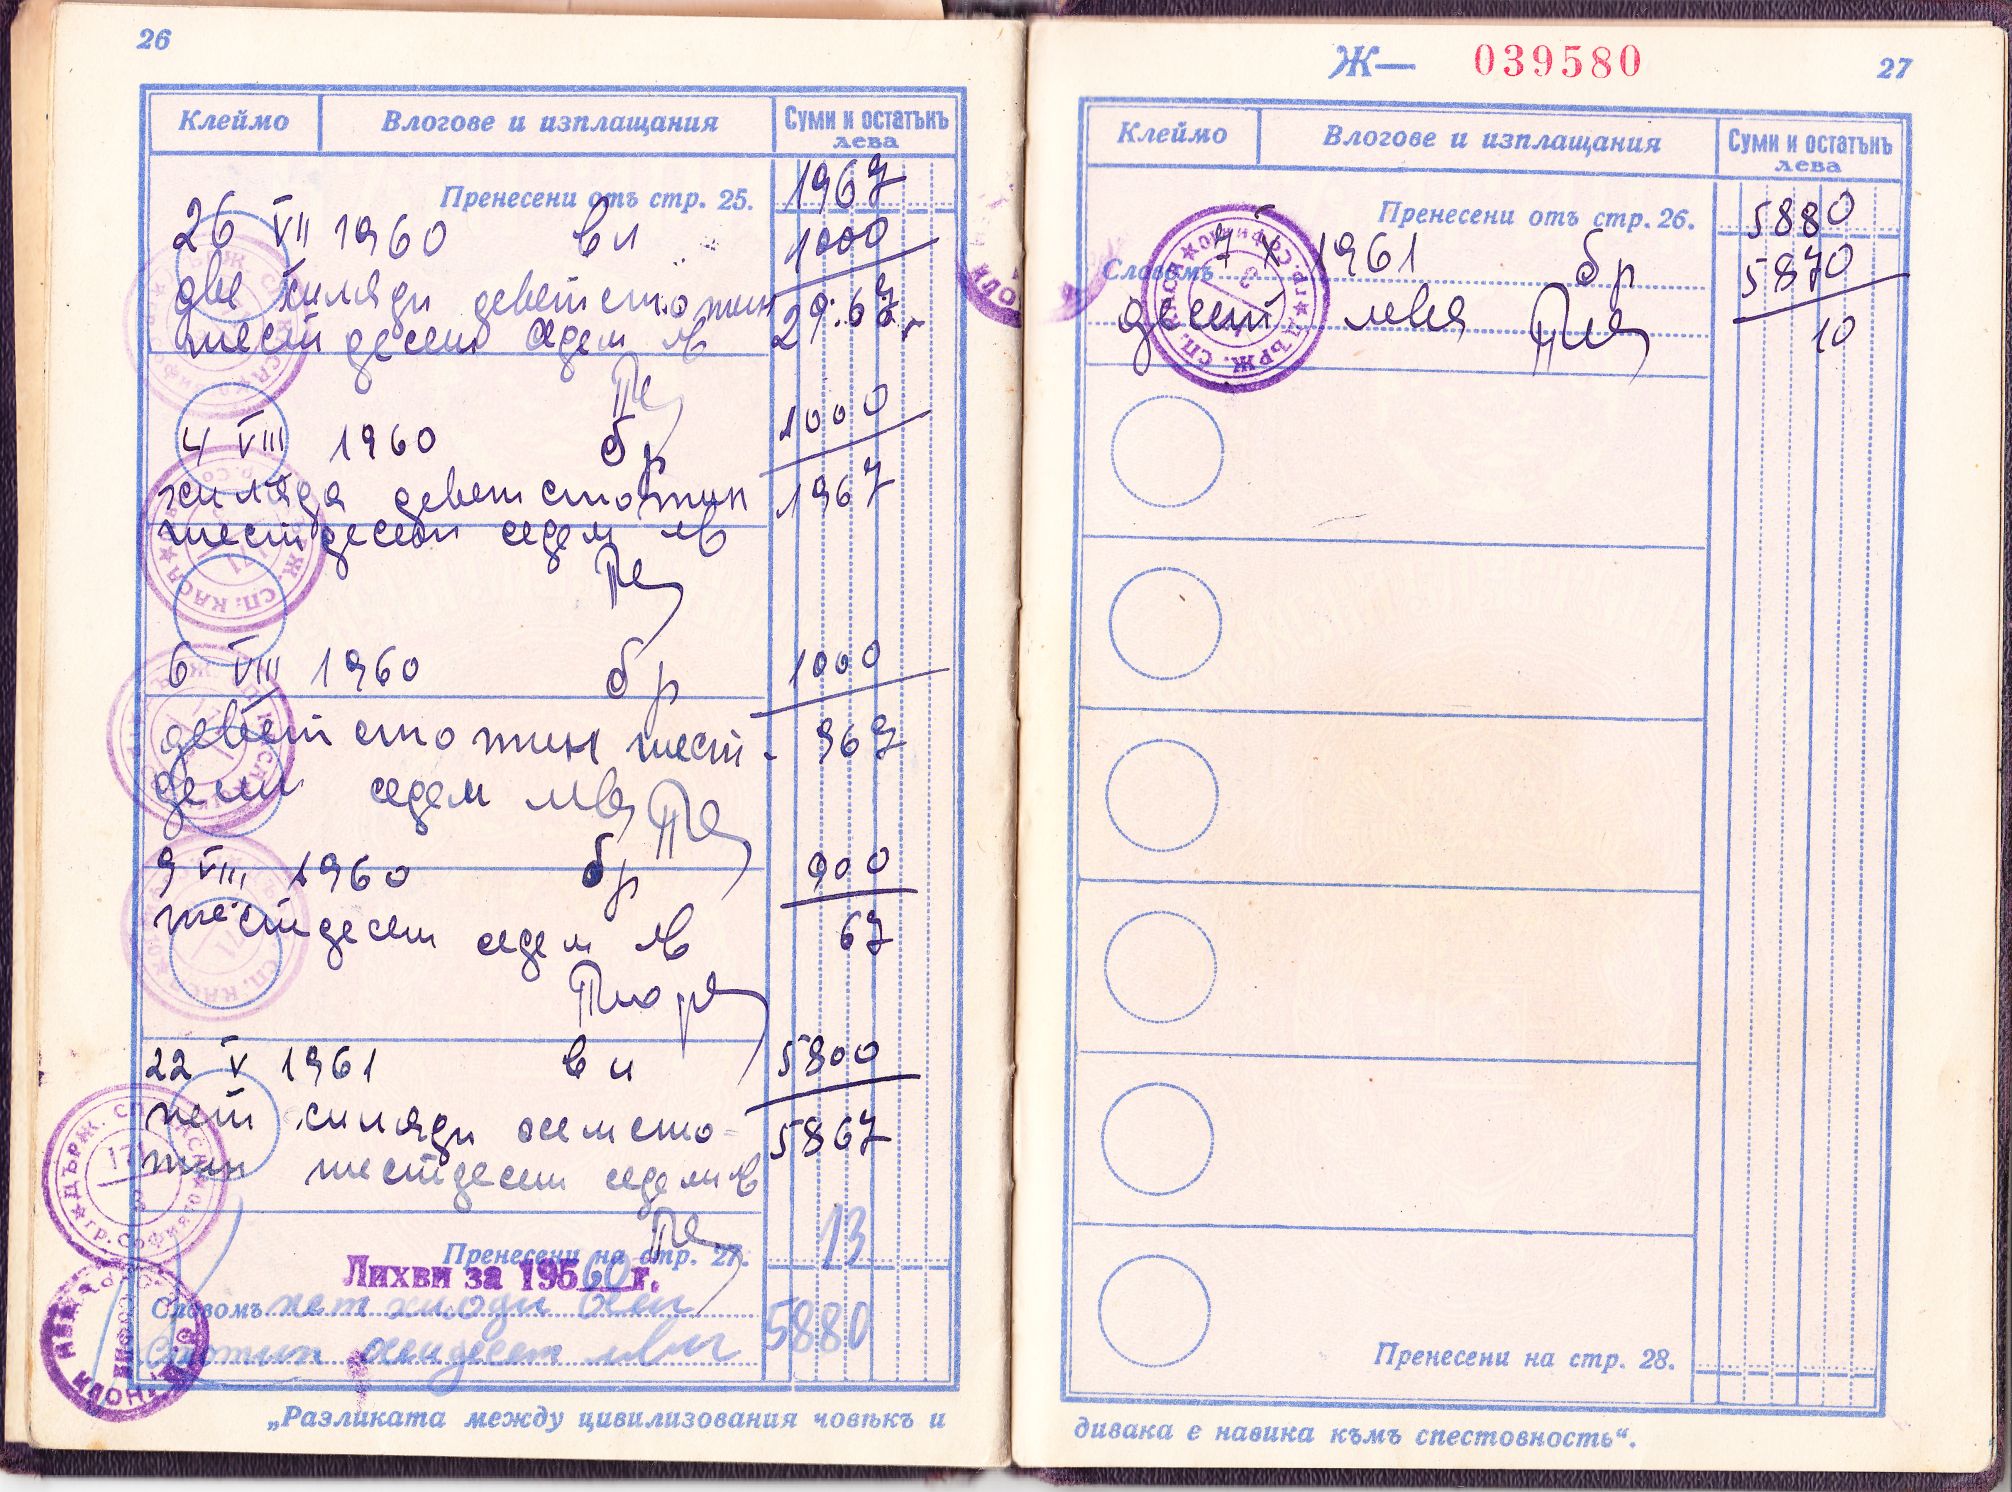 26
Клеймо Влогове и изплащания Суми и остатъкъ
лева
Пренесени отъ стр. 25. 1967
26 VII 1960 вл 1000
две хиляди деветстотин 2967
шестдесет седем лв
4 VIII 1960 бр 1000
хиляда деветстотин 1967
шестдесет седем лв
6 VIII 1960 бр 1000
деветстотин шест- 967
десет седем лева
9 VIII 1960 бр 900
шестдесет седем лв 67
22 V 1961 вл 5800
пет хиляди осемсто- 5867
тин шестдесет седем лв
Пренесени на стр. 27. 13
Лихви за 195 60 г.
Словомъ пет хиляди осем 5880
стотин осемдесет лева
„Разликата между цивилизования човѣкъ и
ДЪРЖ. СП. КАСА гр. София
Ж— 039580
27
Клеймо Влогове и изплащания Суми и остатъкъ
лева
Пренесени отъ стр. 26. 5880
Словомъ 7 X 1961 бр 5870
десет лева 10
ДЪРЖ. СП. КАСА гр. София
Пренесени на стр. 28.
дивака е навика къмъ спестовность“.